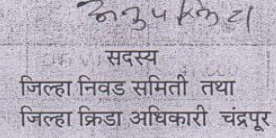 सदस्य
जिल्हा निवड समिती तथा
जिल्हा क्रिडा अधिकारी चंद्रपूर